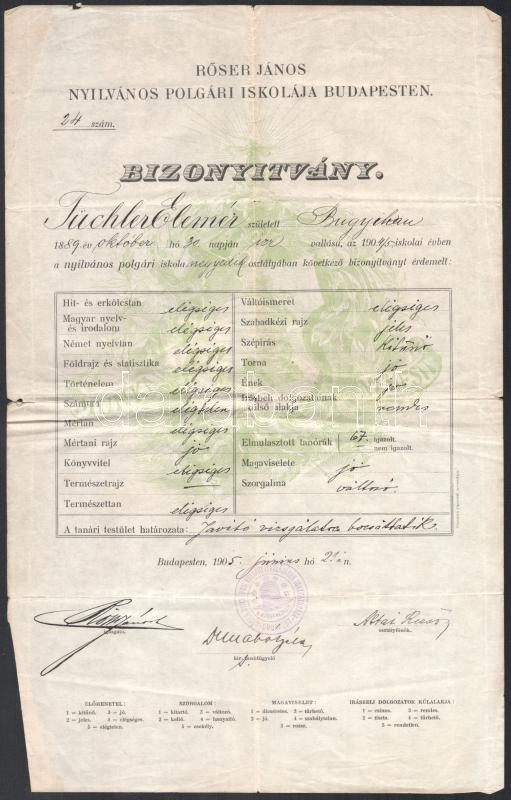 RŐSER JÁNOS
NYILVÁNOS POLGÁRI ISKOLÁJA BUDAPESTEN.
24 szám.
BIZONYITVÁNY.
Tüchler Elemér született
1889. év október hó 30. napján izr vallásu, az 1904/5 iskolai évben
a nyilvános polgári iskola negyedik osztályában következő bizonyitványt érdemelt:
Hit- és erkölcstan elégséges
Magyar nyelv-
és irodalom elégséges
Német nyelvtan elégséges
Földrajz és statisztika elégséges
Történelem elégséges
Számtan elégtelen
Mértan elégséges
Mértani rajz jó
Könyvvitel elégséges
Természetrajz
Természettan elégséges
Váltóismeret elégséges
Szabadkézi rajz jeles
Szépirás kitünő
Torna jó
Ének jó
Irásbeli dolgozatainak
külső alakja rendes
Elmulasztott tanórák 67. igazolt.
nem igazolt.
Magaviselete jó
Szorgalma változó.
A tanári testület határozata: Javitó vizsgálatra bocsáttatik.
Budapesten, 1905. junius hó 2 n.
igazgató.
osztályfőnök.
ELŐMENETEL:
1 = kitünő. 3 = jó.
2 = jeles. 4 = elégséges.
5 = elégtelen.
SZORGALOM:
1 = kitartó. 3 = változó.
2 = kellő. 4 = hanyatló.
5 = csekély.
MAGAVISELET:
1 = dicséretes. 3 = tűrhető.
2 = jó. 4 = szabálytalan.
5 = rossz.
IRÁSBELI DOLGOZATOK KÜLALAKJA:
1 = csinos. 3 = rendes.
2 = tiszta. 4 = tűrhető.
5 = rendetlen.